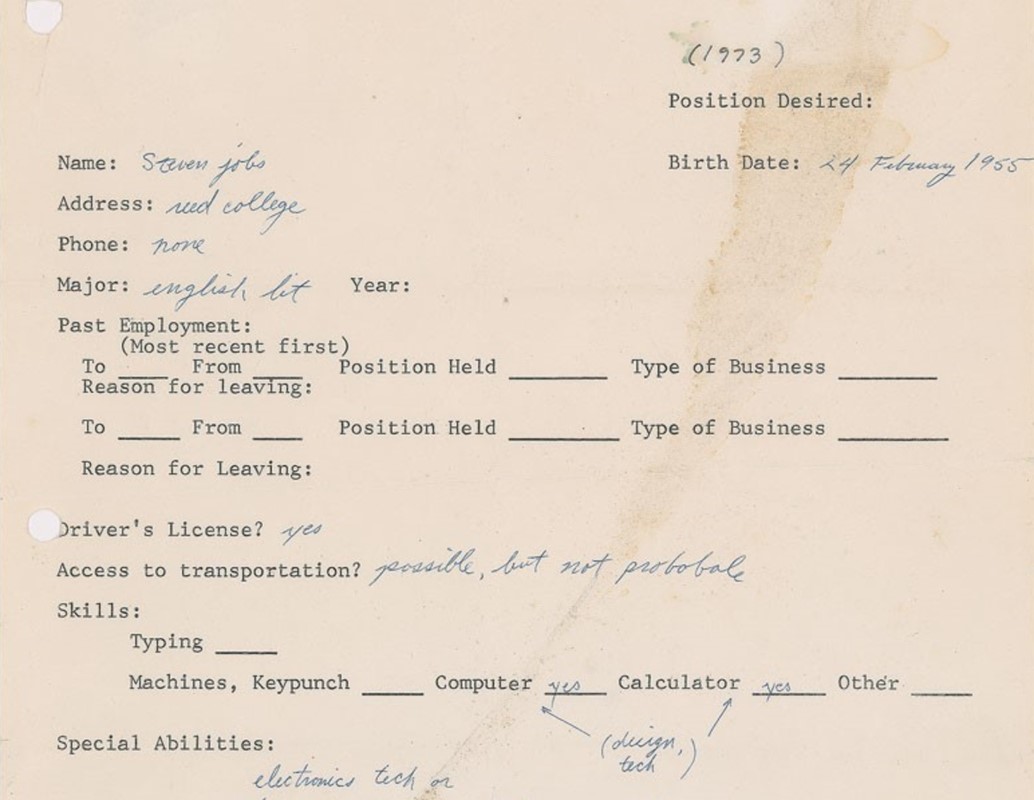 (1973)
Position Desired:
Name: Steven jobs Birth Date: 24 February 1955
Address: reed college
Phone: none
Major: english lit Year:
Past Employment:
(Most recent first)
To ____ From ____ Position Held ________ Type of Business ________
Reason for leaving:
To _____ From ____ Position Held _________ Type of Business _________
Reason for Leaving:
Driver's License? yes
Access to transportation? possible, but not probobale
Skills:
Typing _____
Machines, Keypunch _____ Computer yes Calculator yes Other _____
(design,
tech)
Special Abilities:
electronics tech or